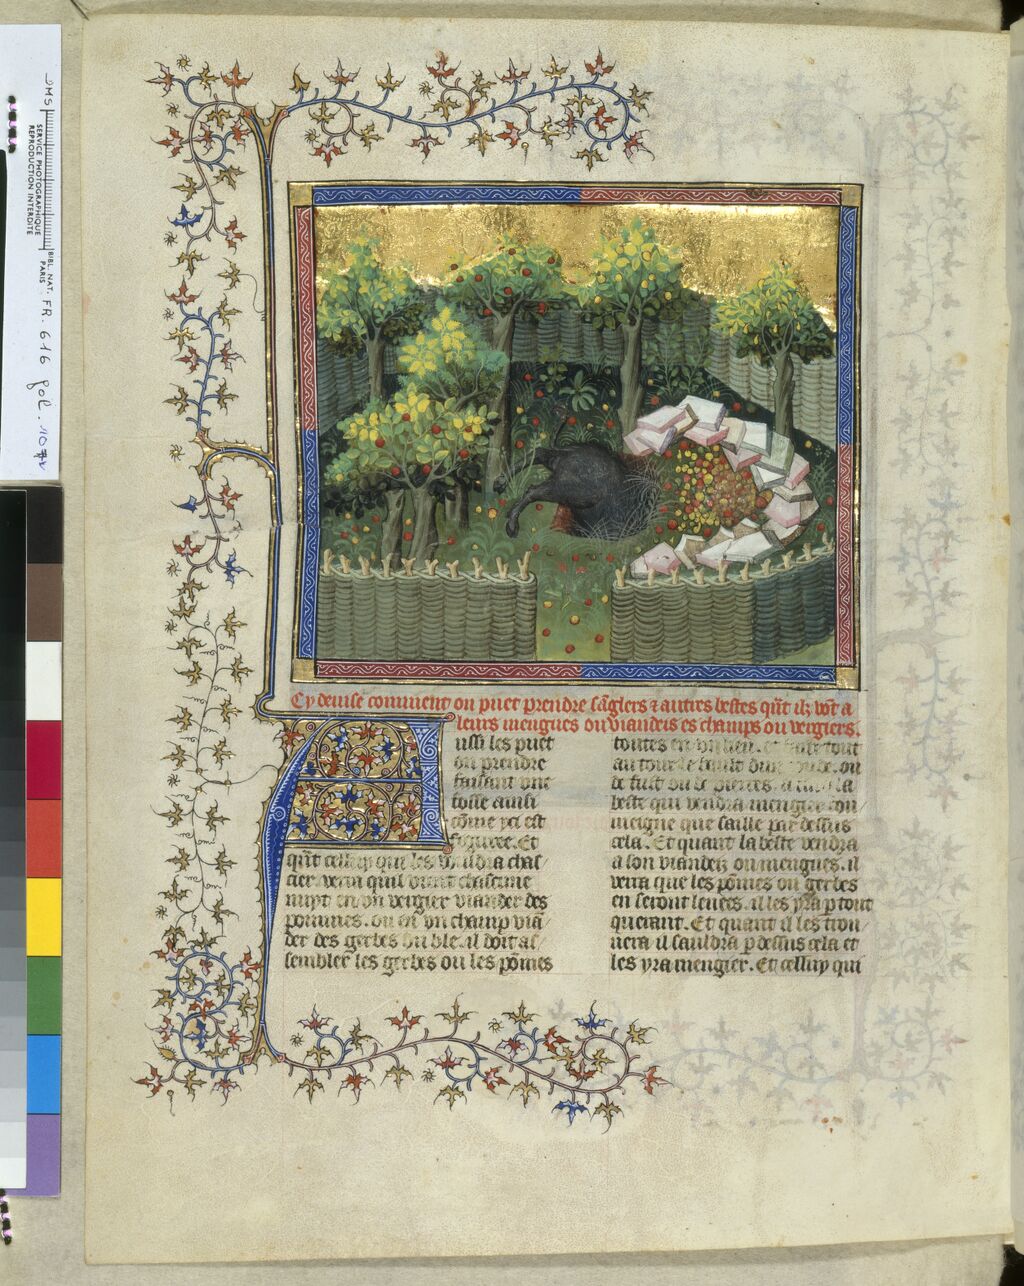 SERVICE PHOTOGRAPHIQUE
REPRODUCTION INTERDITE
BIBL. NAT.
PARIS
FR. 616 fol. 107v
Cy deuise comment on puet prendre sāglers ⁊ autres bestes qūt ilz vōt a
leurs mengues ou viandeis es champs ou vergiers.
Aussi les puet
on prendre
faisant une
fosse ainsi
cōme yci est
figuree. Et
qūt celluy qui les vouldra chas-
cier verra quil vont chascune
nuyt en vn vergier viander des
pommes. ou en vn champ viā-
der des gerbes ou ble. il doit as-
sembler les gerbes ou les pōmes
toutes en vn lieu. et tout
au tour le hault ou
de fust ou de pierres. a la
beste qui vendra mengier con-
uieigne que saille par dessus
cela. Et quant la beste vendra
a son viandeiz ou mengues. il
verra que les pōmes ou gerbes
en seront leuees. il les yra p tout
querant. Et quant il les trou-
uera il sauldra p dessus cela et
les yra mengier. Et celluy qui